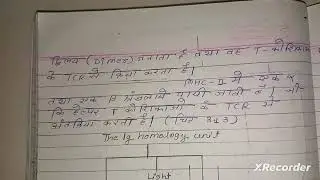 द्विलय (Dimer) बनाता है तथा वह T-कोशिका
के TCR से क्रिया करता है।
MHC-II में एक α
तथा एक β श्रृंखला पायी जाती है। जो
कि हेल्पर T कोशिकाओं के TCR से
अंतःक्रिया करती है। (चित्र
The Ig homology unit
Light
XRecorder